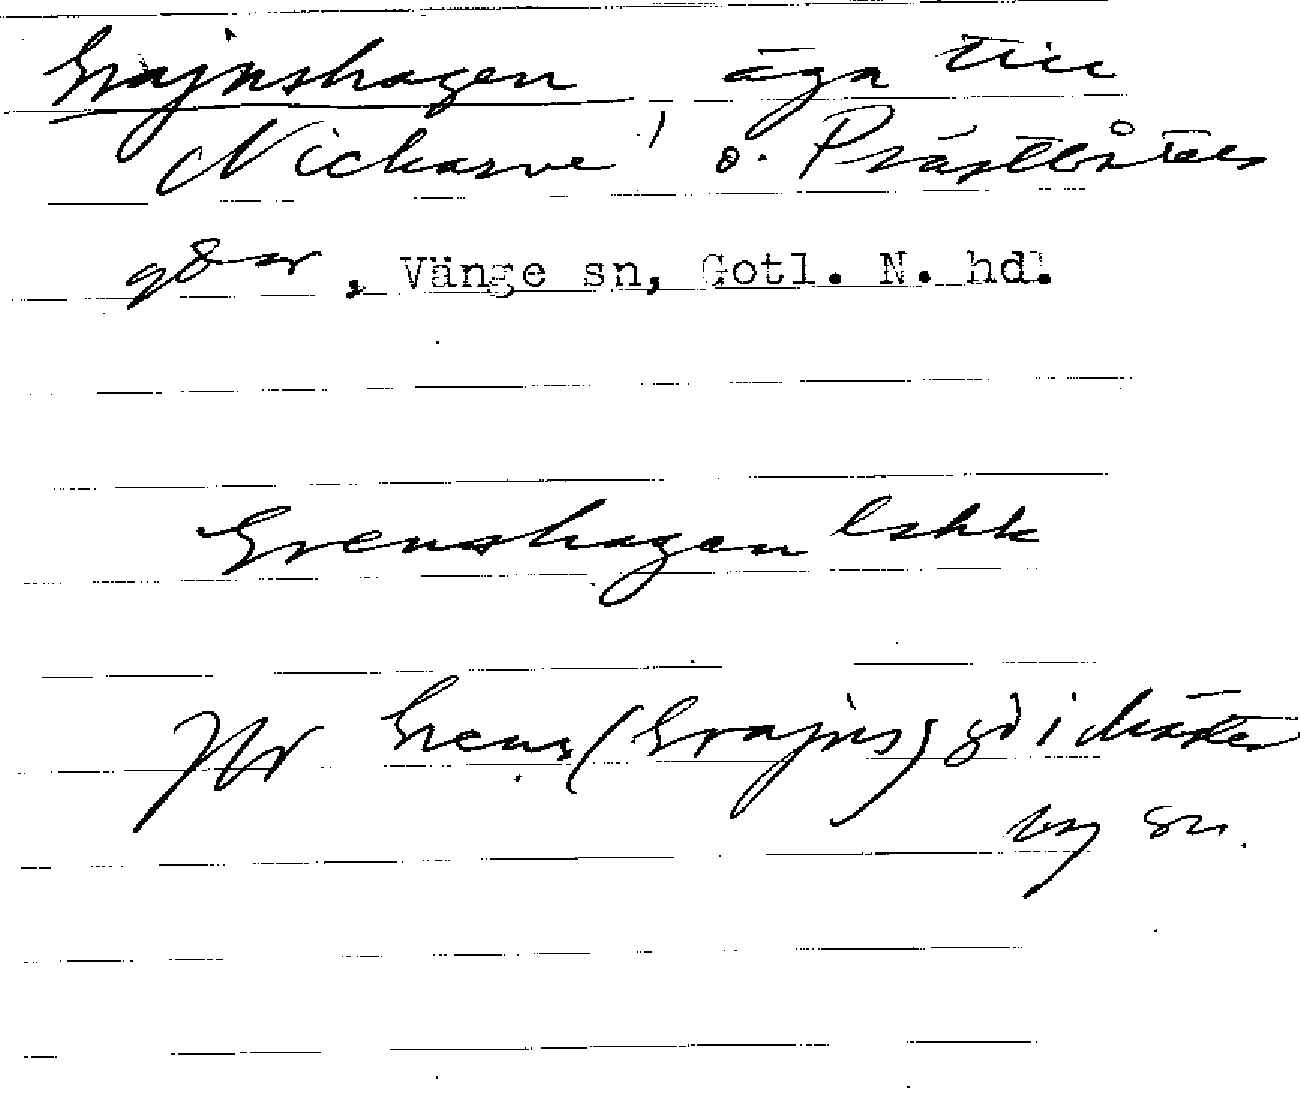 Grajnshagen, äga till
Nickarve o. Prästbåtels
gdar, Vänge sn, Gotl. N. hd.
Grenshagen lskk
Jfr Grens (Grajns) gd i
by sn.